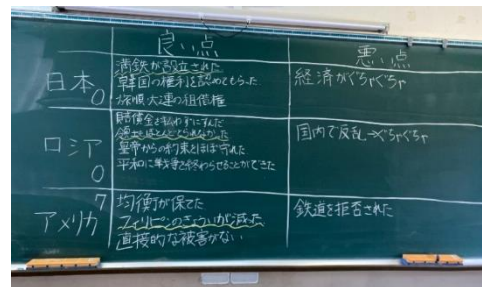 良い点
悪い点
日本
0
満鉄が設立された
韓国の権利を認めてもらった
旅順大連の租借権
経済がぐちゃぐちゃ
ロシア
0
賠償金を払わずにすんだ
領土もほとんどとられなかった
皇帝からの約束をほぼ守れた
平和に戦争を終わらせることができた
国内で反乱→ぐちゃぐちゃ
アメリカ
7
均衡が保てた
フィリピンのきょういが減った
直接的な被害がない
鉄道を拒否された